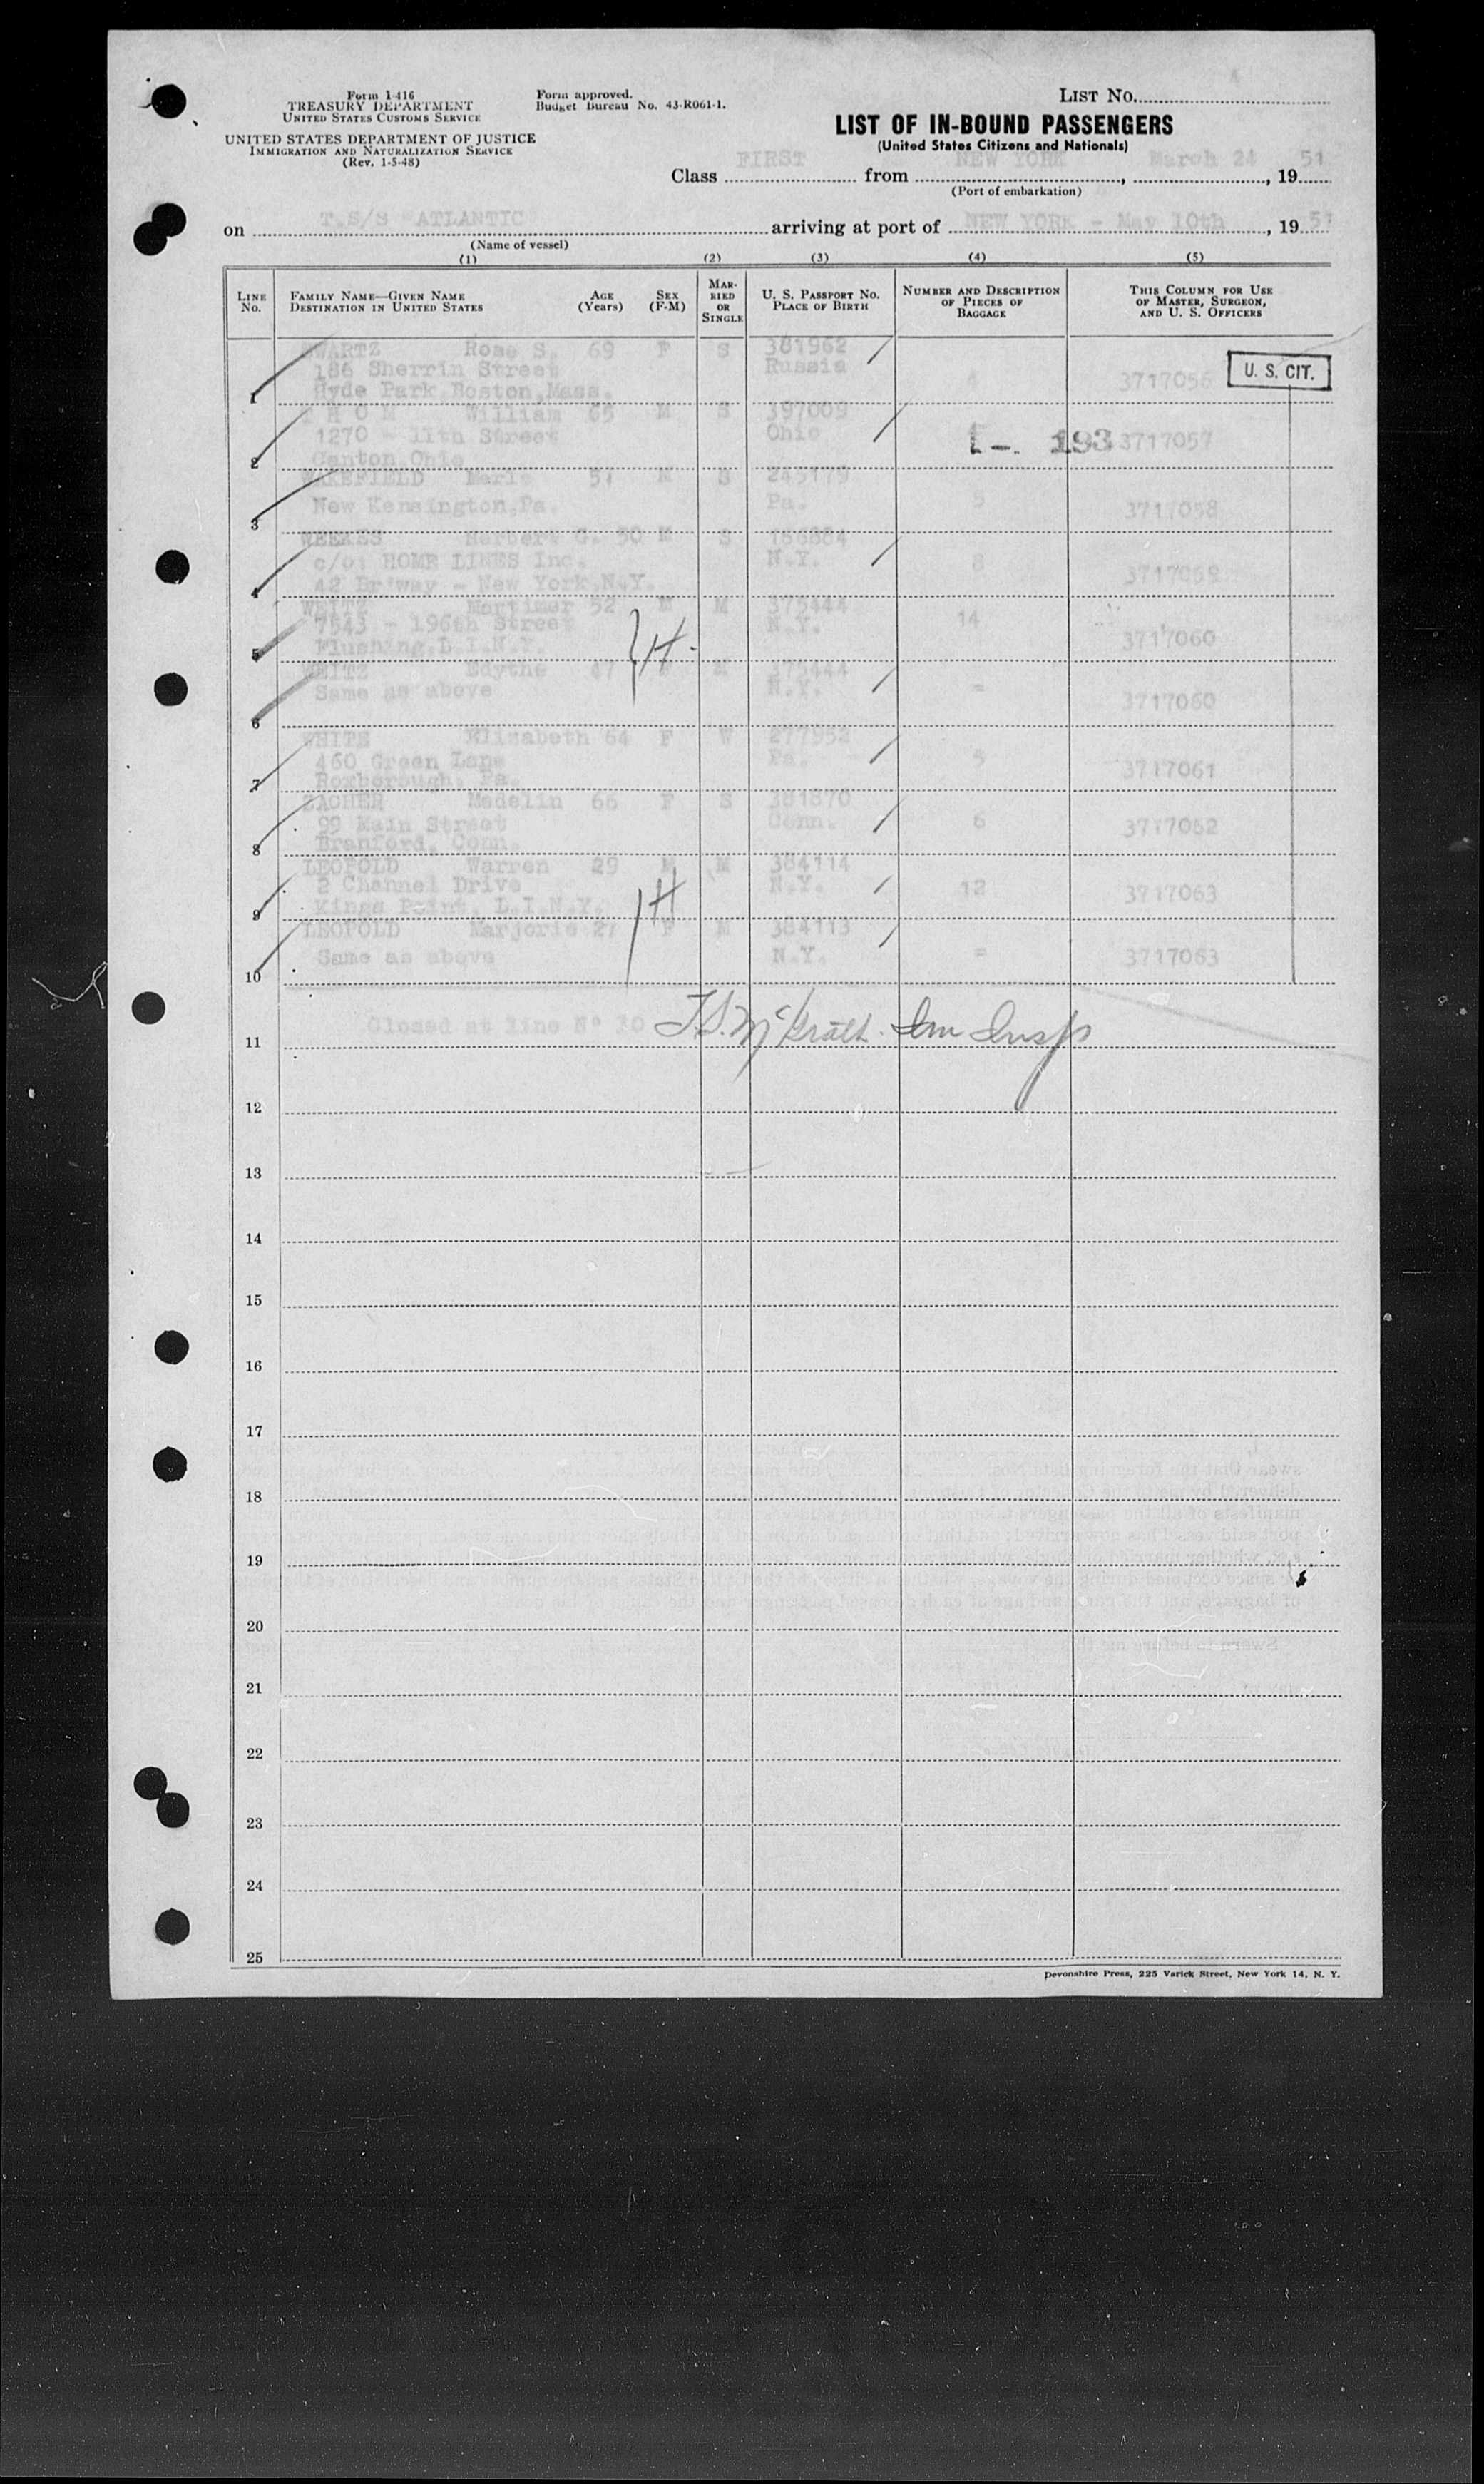 Form I-416
TREASURY DEPARTMENT
UNITED STATES CUSTOMS SERVICE
UNITED STATES DEPARTMENT OF JUSTICE
IMMIGRATION AND NATURALIZATION SERVICE
(Rev. 1-5-48)
Form approved.
Budget Bureau No. 43-R061-1.
LIST NO.
LIST OF IN-BOUND PASSENGERS
(United States Citizens and Nationals)
Class FIRST from NEW YORK, March 24, 1951
(Port of embarkation)
on T.S/S "ATLANTIC" arriving at port of NEW YORK - May 10th, 1951
(Name of vessel)
(1) (2) (3) (4) (5)
LINE No. FAMILY NAME—GIVEN NAME DESTINATION IN UNITED STATES AGE (Years) SEX (F-M) MARRIED OR SINGLE U. S. PASSPORT NO. PLACE OF BIRTH NUMBER AND DESCRIPTION OF PIECES OF BAGGAGE THIS COLUMN FOR USE OF MASTER, SURGEON, AND U. S. OFFICERS
SWARTZ Rose S. 69 F S 381962
186 Sherrin Street Russia
1 Hyde Park Boston, Mass. 4 3717056 U. S. CIT.
THOM William 65 M S 397009
1270 - 11th Street Ohio
2 Canton Ohio 193 3717057
WAKEFIELD Merle 51 M S 245179
3 New Kensington, Pa. Pa. 5 3717058
WEEKES Herbert G. 50 M S 156884
c/o: HOME LINES Inc. N.Y. 8
4 42 Br'way - New York, N.Y. 3717059
WEITZ Mortimer 52 M M 375444
7543 - 196th Street N.Y. 14
5 Flushing, L.I.N.Y. H 3717060
WEITZ Edythe 47 F M 375444
6 Same as above N.Y. = 3717060
WHITE Elizabeth 64 F W 277952
460 Green Lane Pa. 5
7 Roxborough, Pa. 3717061
ZACHER Medelin 66 F S 381870
99 Main Street Conn. 6
8 Branford, Conn. 3717062
LEOPOLD Warren 29 M M 384114
2 Channel Drive N.Y. 12
9 Kings Point, L.I.N.Y. H 3717063
LEOPOLD Marjorie 27 F M 384113
10 Same as above N.Y. = 3717063
11 Closed at line N° 10 T.S. McGrath. Im Insp
12
13
14
15
16
17
18
19
20
21
22
23
24
25
Devonshire Press, 225 Varick Street, New York 14, N. Y.